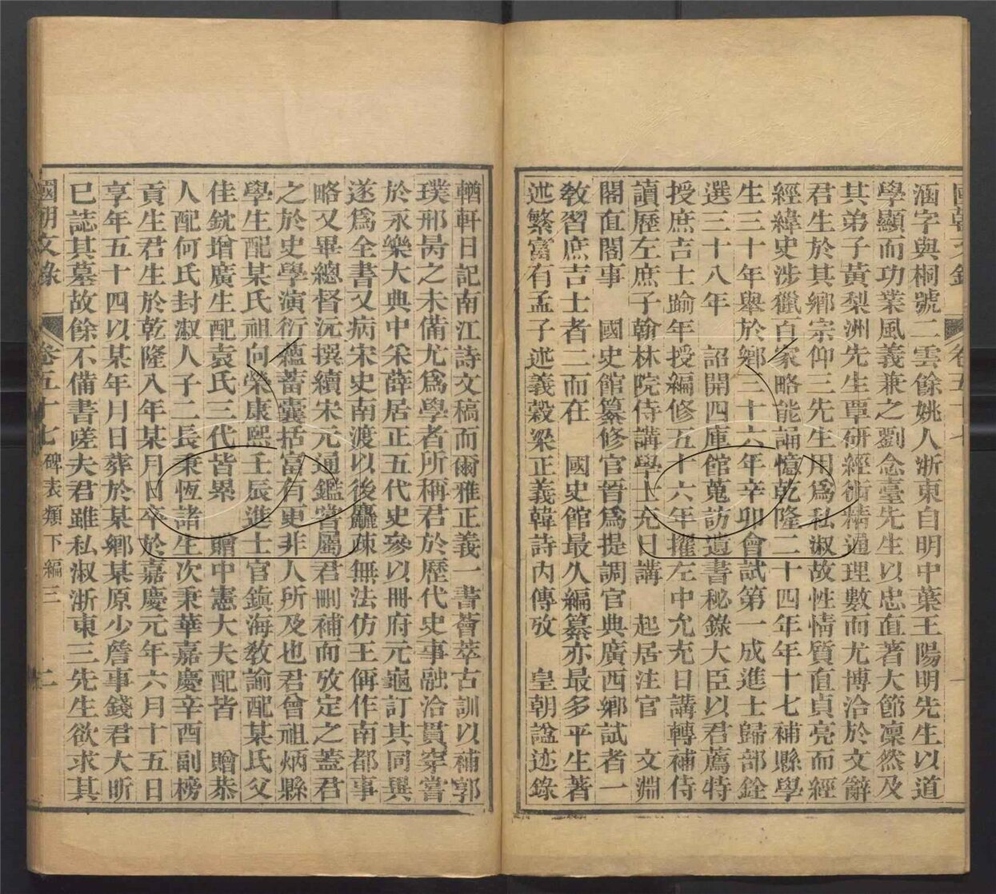 國朝文錄 卷五十七
涵字與桐號二雲餘姚人浙東自明中葉王陽明先生以道
學顯而功業風義兼之劉念臺先生以忠直著大節凜然及
其弟子黃梨洲先生覃研經術精通理數而尤博洽於文辭
君生於其鄉宗仰三先生用爲私淑故性情質直貞亮而經
經緯史涉獵百家略能誦憶乾隆二十四年年十七補縣學
生三十年舉於鄉三十六年辛卯會試第一成進士歸部銓
選三十八年 詔開四庫館蒐訪遺書秘錄大臣以君薦特
授庶吉士踰年授編修五十六年擢左中允充日講轉補侍
讀歷左庶子翰林院侍講學士充日講 起居注官 文淵
閣直閣事 國史館纂修官晉爲提調官典廣西鄉試者一
敎習庶吉士者二而在 國史館最久編纂亦最多平生著
述繁富有孟子述義穀梁正義韓詩內傳攷 皇朝諡述錄
輶軒日記南江詩文稿而爾雅正義一書薈萃古訓以補郭
璞邢昺之未備尤爲學者所稱君於歷代史事融洽貫穿嘗
於永樂大典中采薛居正五代史參以冊府元龜訂其同異
遂爲全書又病宋史南渡以後麤疎無法仿王偁作南都事
略又畢總督沅撰續宋元通鑑嘗屬君刪補而攷定之蓋君
之於史學演衍蘊蓄囊括富有更非人所及也君曾祖炳縣
學生配某氏祖向榮康熙壬辰進士官鎭海敎諭配某氏父
佳銃增廣生配袁氏三代皆累 贈中憲大夫配皆 贈恭
人配何氏封淑人子二長秉恆諸生次秉華嘉慶辛酉副榜
貢生君生於乾隆八年某月日卒於嘉慶元年六月十五日
享年五十四以某年月日葬於某鄉某原少詹事錢君大昕
已誌其墓故餘不備書嗟夫君雖私淑浙東三先生欲求其
國朝文錄 卷五十七 碑表類下編三 二